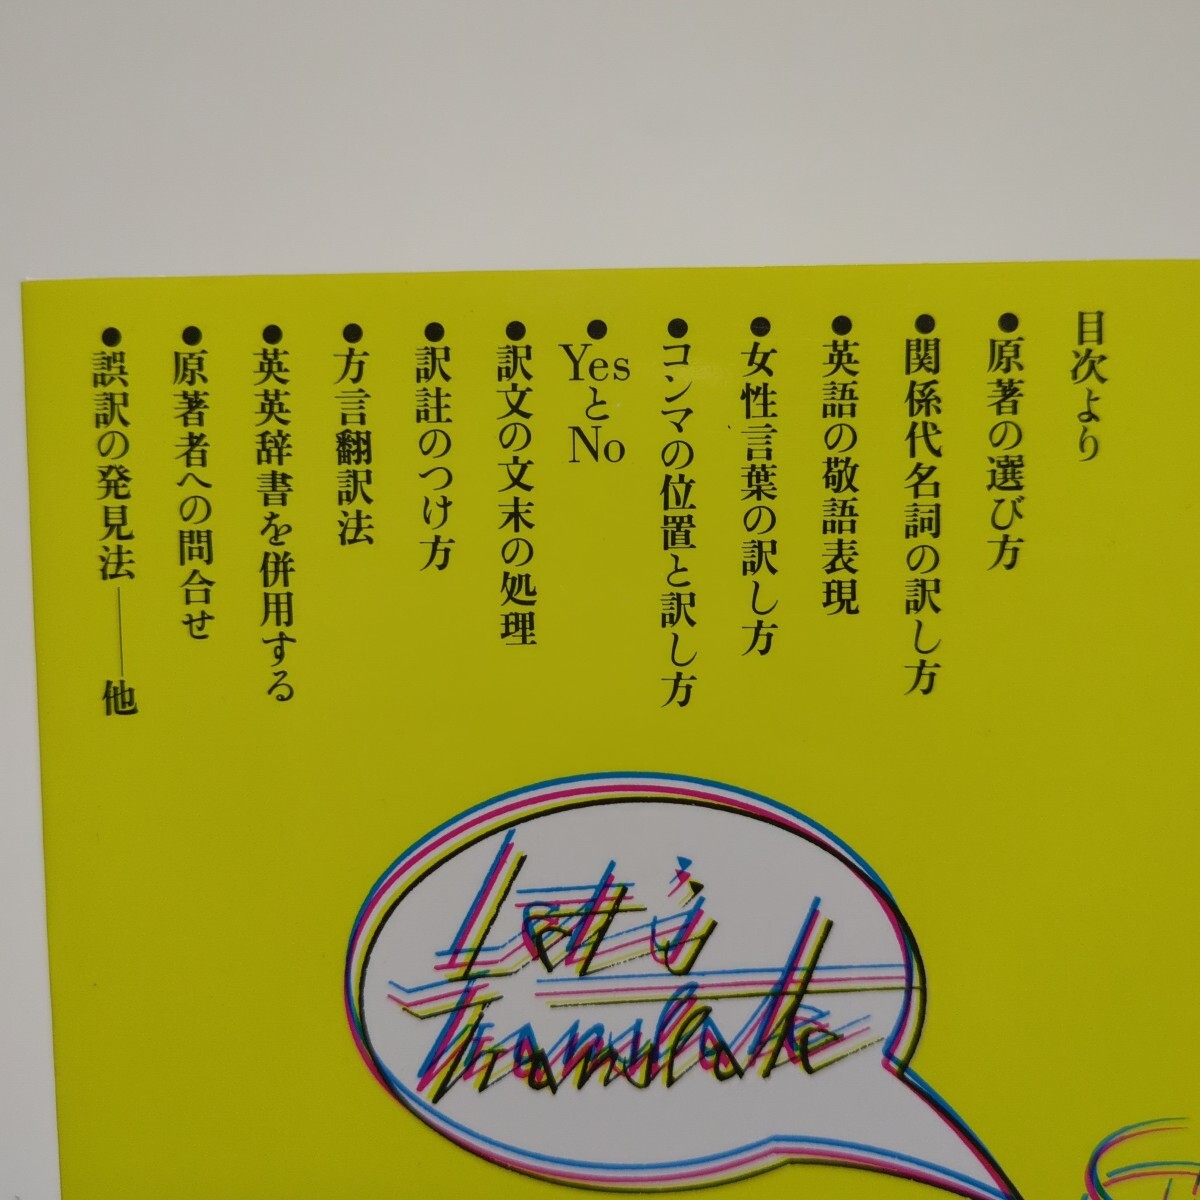 目次より
●原著の選び方
●関係代名詞の訳し方
●英語の敬語表現
●女性言葉の訳し方
●コンマの位置と訳し方
●YesとNo
●訳文の文末の処理
●訳註のつけ方
●方言翻訳法
●英英辞書を併用する
●原著者への問合せ
●誤訳の発見法――他
Let's
Translate